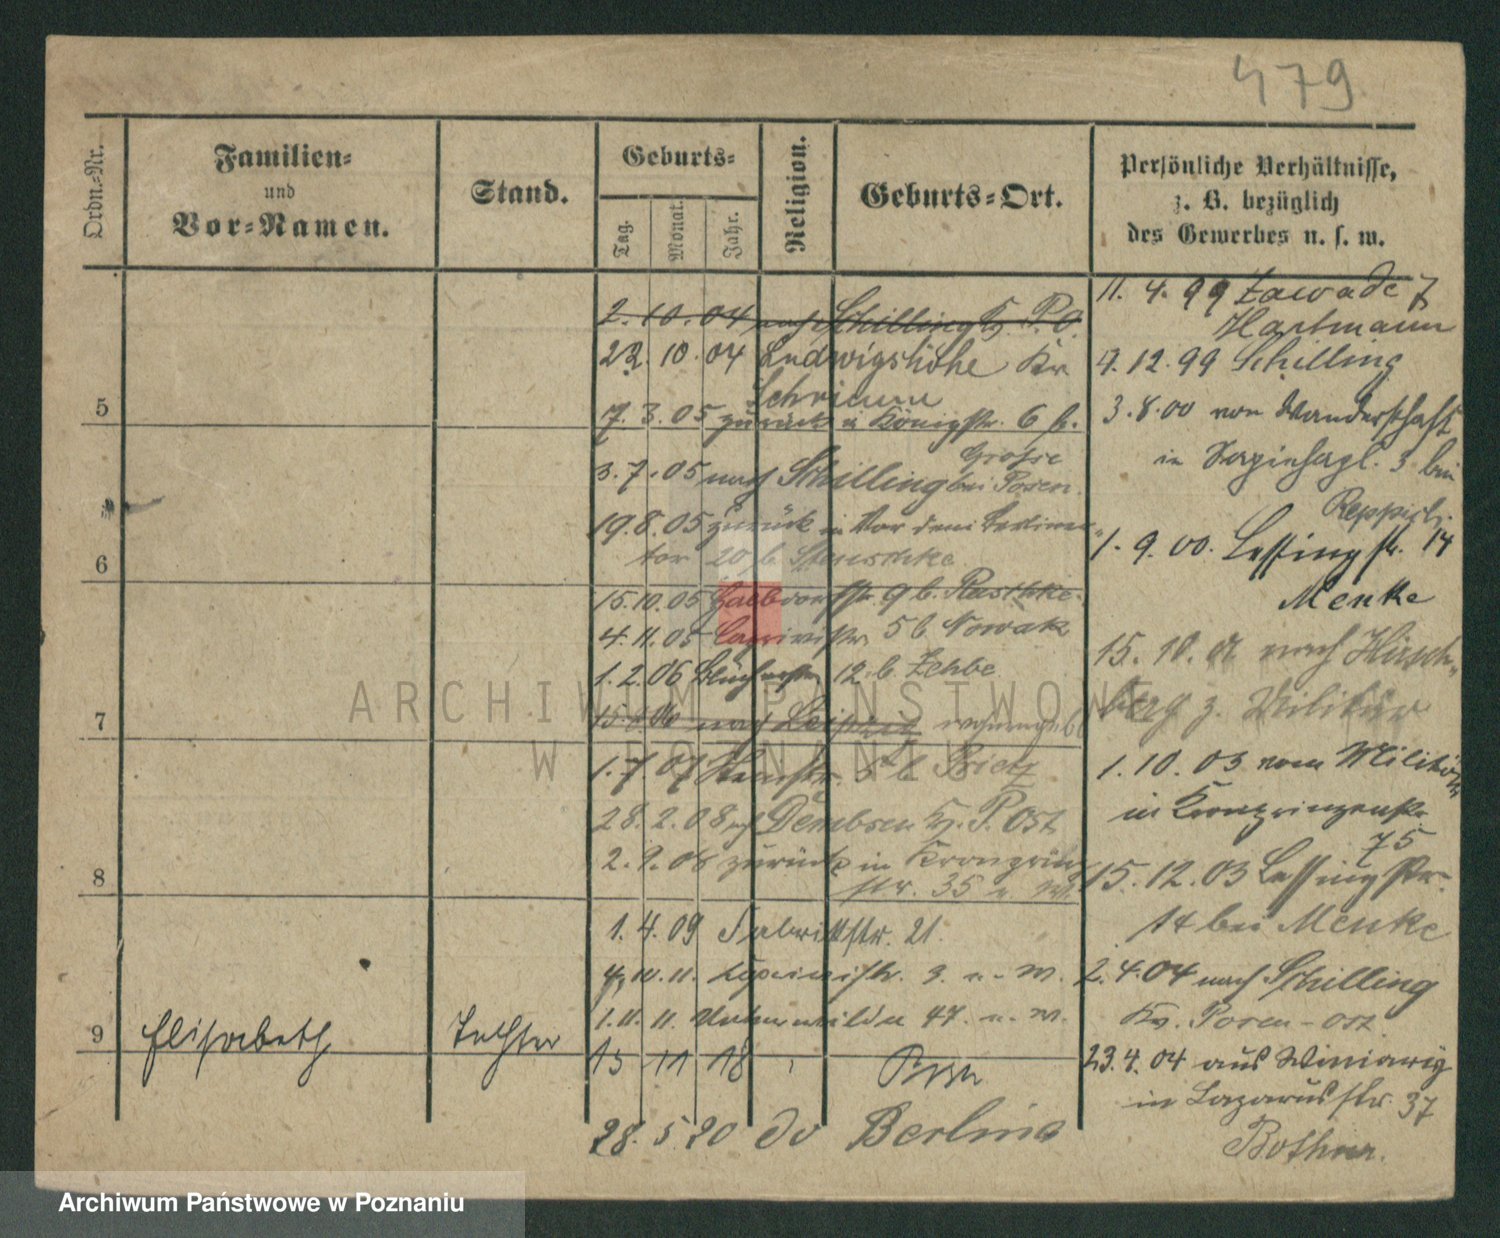 479
Ordn.-Nr.
Familien-
und
Vor-Namen.
Stand.
Geburts-
Tag.
Monat.
Jahr.
Religion.
Geburts-Ort.
Persönliche Verhältnisse,
z. B. bezüglich
des Gewerbes u. s. w.
5
6
7
8
9
Elisabeth
Tochter
2. 10. 04 nach Schilling Kr. P. O.
22. 10. 04 Ludwigshöhe Kr
Schrimm
7. 3. 05 zurück in Königstr. 6 b.
Grosse
3. 7. 05 nach Schilling bei Posen.
19. 8. 05 zurück in Vor dem Berliner
tor 20 b
15. 10. 05 9 b. Raschke
4. 11. 05 5 b Nowak
1. 2. 06 Blücherstr. 12. b Zehbe
nach Leipzig
1. 7. 07 b
28. 2. 08 Dembsen Kr. P. Ost
2. 9. 08 zurück in Kronprinz
str. 35
1. 4. 09 Fabrikstr. 21.
11. 3. u. W.
1. 11. 11. 47. u. W.
15 11 18 Posen
28. 5. 20 do Berlin
11. 4. 99 Zawade 7
Hartmann
4. 12. 99 Schilling
3. 8. 00 von Wanderschaft
in 3 bei
1. 9. 00. Lessingstr. 14
Menke
15. 10. 01 nach Hirsch-
berg z. Militär
1. 10. 03 vom Militär
in Kronprinzenstr.
75
15. 12. 03 Lessingstr.
14 bei Menke
2. 4. 04 nach Schilling
Kr. Posen-Ost
23. 4. 04 aus Winiary
in Lazarusstr. 37
ARCHIWUM PAŃSTWOWE
W POZNANIU
Archiwum Państwowe w Poznaniu